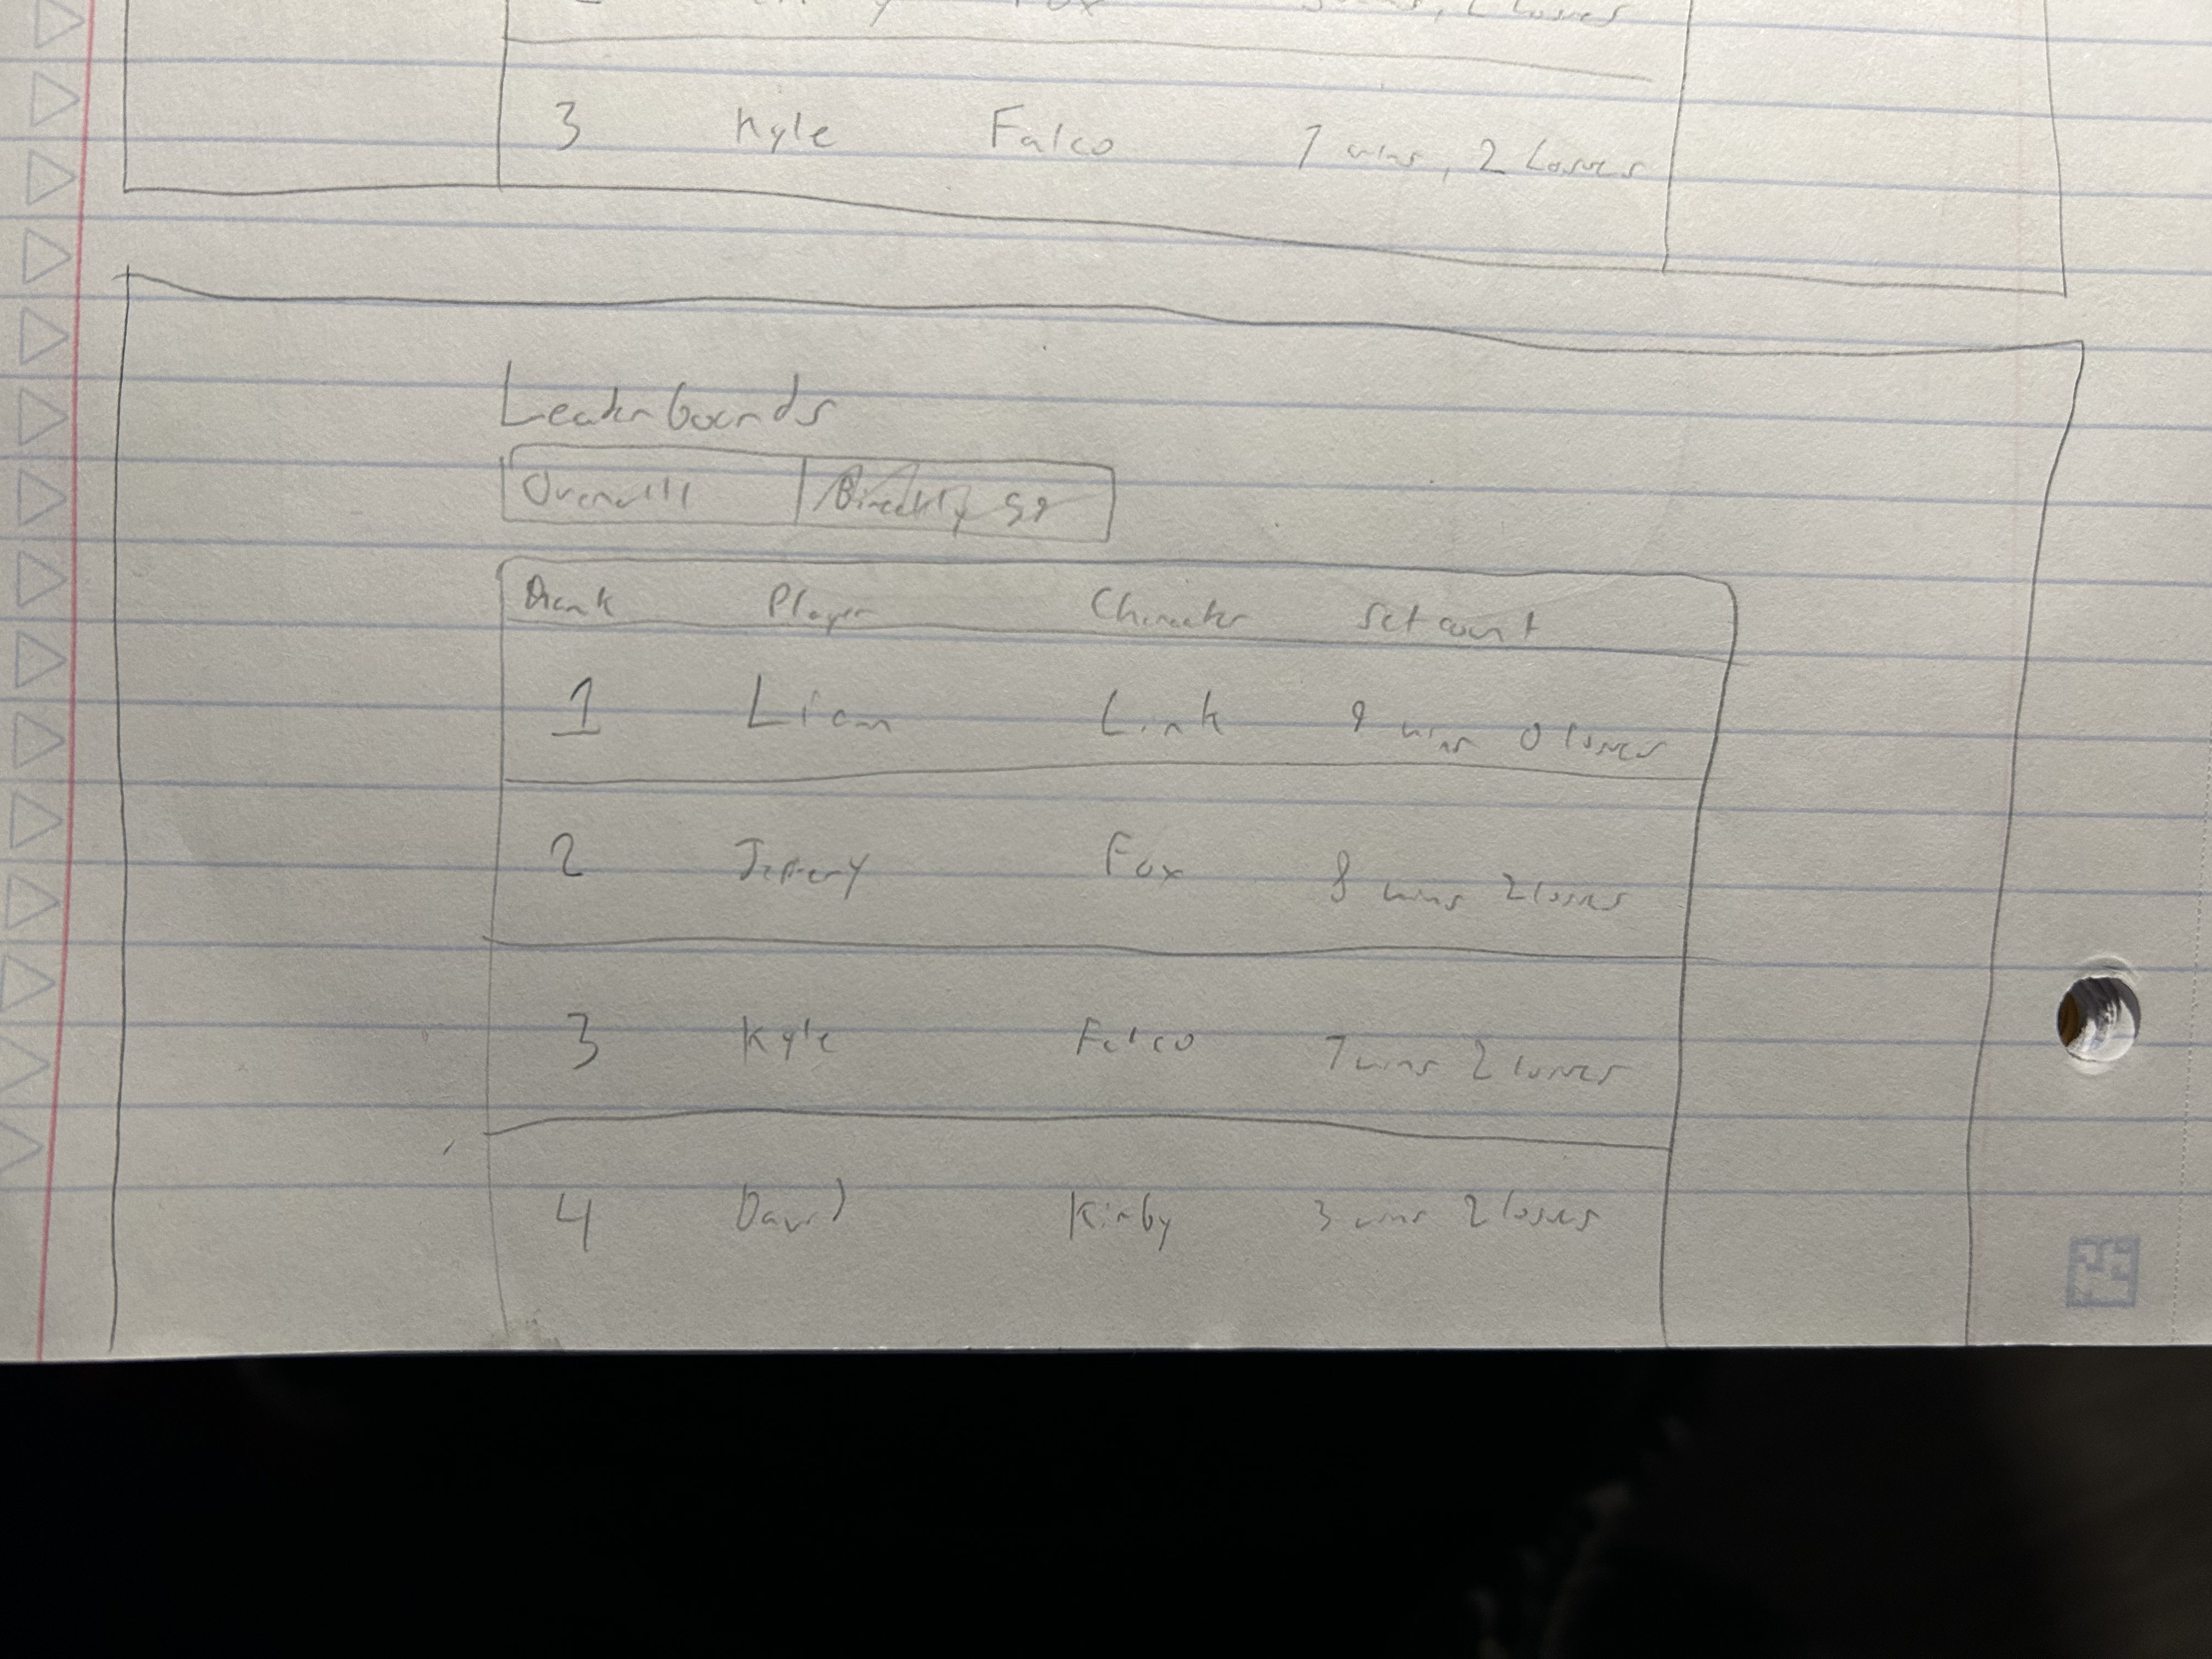 3 Kyle Falco 7 wins, 2 Losses
Leaderboards
Overalll
Rank Player Character Set count
1 Liam Link 9 wins 0 losses
2 Jeffery Fox 8 wins 2 losses
3 Kyle Falco 7 wins 2 losses
4 David Kirby 3 wins 2 losses